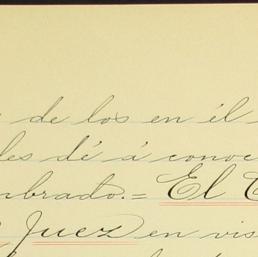 de los en él
les dé á conoc
mbrado.= El
Juez en vis